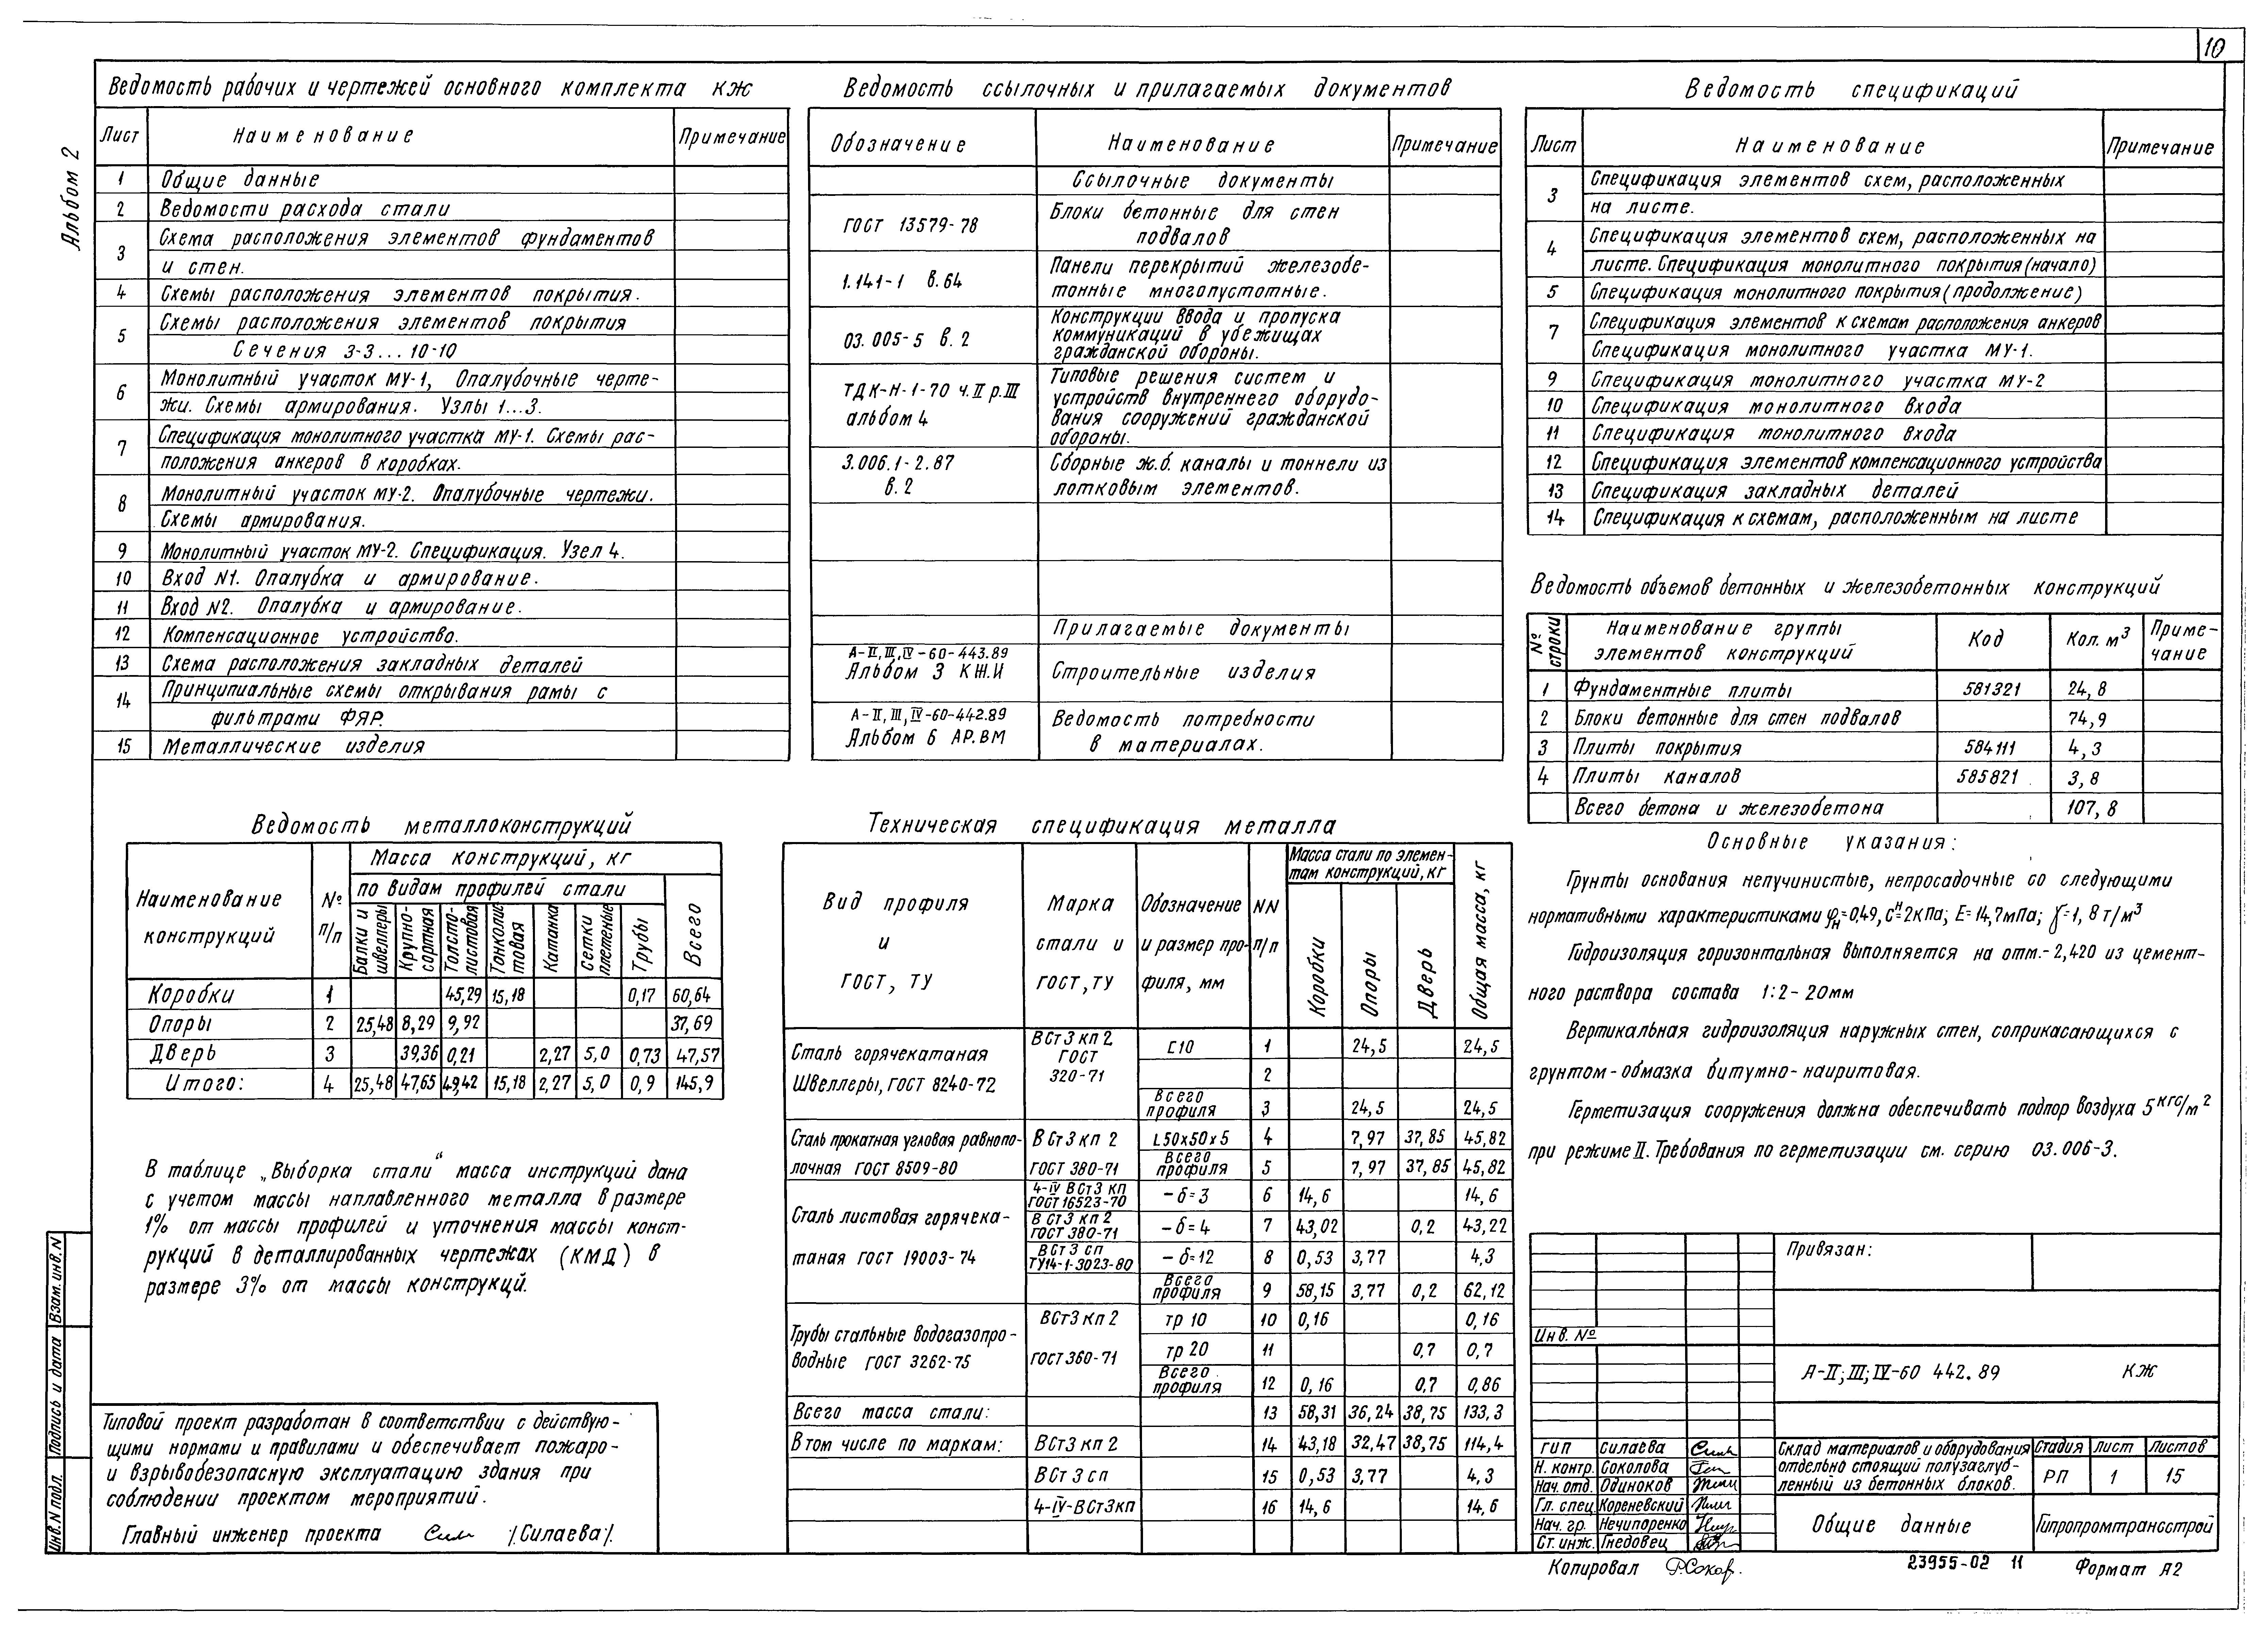 10
Альбом 2
Ведомость рабочих и чертежей основного комплекта КЖ
Лист Наименование Примечание
1 Общие данные
2 Ведомости расхода стали
3 Схема расположения элементов фундаментов
и стен.
4 Схемы расположения элементов покрытия.
5 Схемы расположения элементов покрытия
Сечения 3-3...10-10
6 Монолитный участок МУ-1, Опалубочные черте-
жи. Схемы армирования. Узлы 1...3.
7 Спецификация монолитного участка МУ-1. Схемы рас-
положения анкеров в коробках.
8 Монолитный участок МУ-2. Опалубочные чертежи.
Схемы армирования.
9 Монолитный участок МУ-2. Спецификация. Узел 4.
10 Вход N1. Опалубка и армирование.
11 Вход N2. Опалубка и армирование.
12 Компенсационное устройство.
13 Схема расположения закладных деталей
14 Принципиальные схемы открывания рамы с
фильтрами ФЯР.
15 Металлические изделия
Ведомость ссылочных и прилагаемых документов
Обозначение Наименование Примечание
Ссылочные документы
ГОСТ 13579-78 Блоки бетонные для стен
подвалов
1.141-1 в.64 Панели перекрытий железобе-
тонные многопустотные.
03.005-5 в.2 Конструкции ввода и пропуска
коммуникаций в убежищах
гражданской обороны.
ТДК-Н-1-70 ч.II р.III
альбом 4
Типовые решения систем и
устройств внутреннего оборудо-
вания сооружений гражданской
обороны.
3.006.1-2.87
в.2
Сборные ж.б. каналы и тоннели из
лотковым элементов.
Прилагаемые документы
А-II, III, IV-60-443.89
Альбом 3 КЖ.И Строительные изделия
А-II, III, IV-60-442.89
Альбом 6 АР.ВМ
Ведомость потребности
в материалах.
Ведомость спецификаций
Лист Наименование Примечание
3 Спецификация элементов схем, расположенных
на листе.
4 Спецификация элементов схем, расположенных на
листе. Спецификация монолитного покрытия (начало)
5 Спецификация монолитного покрытия (продолжение)
7 Спецификация элементов к схемам расположения анкеров
Спецификация монолитного участка МУ-1.
9 Спецификация монолитного участка МУ-2
10 Спецификация монолитного входа
11 Спецификация монолитного входа
12 Спецификация элементов компенсационного устройства
13 Спецификация закладных деталей
14 Спецификация к схемам, расположенным на листе
Ведомость объемов бетонных и железобетонных конструкций
№ строки Наименование группы элементов конструкций Код Кол. м3 Приме-чание
1 Фундаментные плиты 581321 24,8
2 Блоки бетонные для стен подвалов 74,9
3 Плиты покрытия 584111 4,3
4 Плиты каналов 585821 3,8
Всего бетона и железобетона 107,8
Основные указания:
Грунты основания непучинистые, непросадочные со следующими
нормативными характеристиками φн=0,49, сн=2кПа; Е=14,7мПа; γ=1,8 т/м3
Гидроизоляция горизонтальная выполняется на отм.-2,420 из цемент-
ного раствора состава 1:2-20мм
Вертикальная гидроизоляция наружных стен, соприкасающихся с
грунтом-обмазка битумно-наиритовая.
Герметизация сооружения должна обеспечивать подпор воздуха 5кгс/м2
при режиме II. Требования по герметизации см. серию 03.006-3.
Ведомость металлоконструкций
Наименование конструкций № п/п Масса конструкций, кг
по видам профилей стали Всего
Балки и швеллеры Крупно-сортная Толсто-листовая Тонколис-товая Катанка Сетки плетеные Трубы
Коробки 1 45,29 15,18 0,17 60,64
Опоры 2 25,48 8,29 9,92 37,69
Дверь 3 39,36 0,21 2,27 5,0 0,73 47,57
Итого: 4 25,48 47,65 49,42 15,18 2,27 5,0 0,9 145,9
В таблице „Выборка стали“ масса инструкций дана
с учетом массы наплавленного металла в размере
1% от массы профилей и уточнения массы конст-
рукций в деталлированных чертежах (КМД) в
размере 3% от массы конструкцй.
Техническая спецификация металла
Вид профиля и ГОСТ, ТУ Марка стали и ГОСТ, ТУ Обозначение и размер про-филя, мм NN п/п Масса стали по элемен-там конструкций, кг Общая масса, кг
Коробки Опоры Дверь
Сталь горячекатаная ВСт3кп2 ГОСТ 320-71 [10 1 24,5 24,5
Швеллеры, ГОСТ 8240-72 2
Всего профиля 3 24,5 24,5
Сталь прокатная угловая равнопо- ВСт3кп2 L50х50х5 4 7,97 37,85 45,82
лочная ГОСТ 8509-80 ГОСТ 380-71 Всего профиля 5 7,97 37,85 45,82
4-IV ВСт3кп ГОСТ 16523-70 -δ=3 6 14,6 14,6
Сталь листовая горячека- ВСт3кп2 ГОСТ 380-71 -δ=4 7 43,02 0,2 43,22
таная ГОСТ 19003-74 ВСт3сп ТУ14-1-3023-80 -δ=12 8 0,53 3,77 4,3
Всего профиля 9 58,15 3,77 0,2 62,12
Трубы стальные водогазопро- ВСт3кп2 тр 10 10 0,16 0,16
водные ГОСТ 3262-75 ГОСТ 360-71 тр 20 11 0,7 0,7
Всего профиля 12 0,16 0,7 0,86
Всего масса стали: 13 58,31 36,24 38,75 133,3
В том числе по маркам: ВСт3кп2 14 43,18 32,47 38,75 114,4
ВСт3сп 15 0,53 3,77 4,3
4-IV-ВСт3кп 16 14,6 14,6
Типовой проект разработан в соответствии с действую-
щими нормами и правилами и обеспечивает пожаро-
и взрывобезопасную эксплуатацию здания при
соблюдении проектом мероприятий.
Главный инженер проекта /Силаева/.
Взам. инв. N
Подпись и дата
Инв. N подл.
Привязан:
Инв. №
А-II; III; IV-60 442.89 КЖ
ГИП Силаева
Н. контр. Соколова
Нач. отд. Одиноков
Гл. спец Кореневский
Нач. гр. Нечипоренко
Ст. инж. Гнедовец
Склад материалов и оборудования
отдельно стоящий полузаглуб-
ленный из бетонных блоков.
Стадия Лист Листов
РП 1 15
Общие данные Гипропромтрансстрой
Копировал
23955-02 11 Формат А2